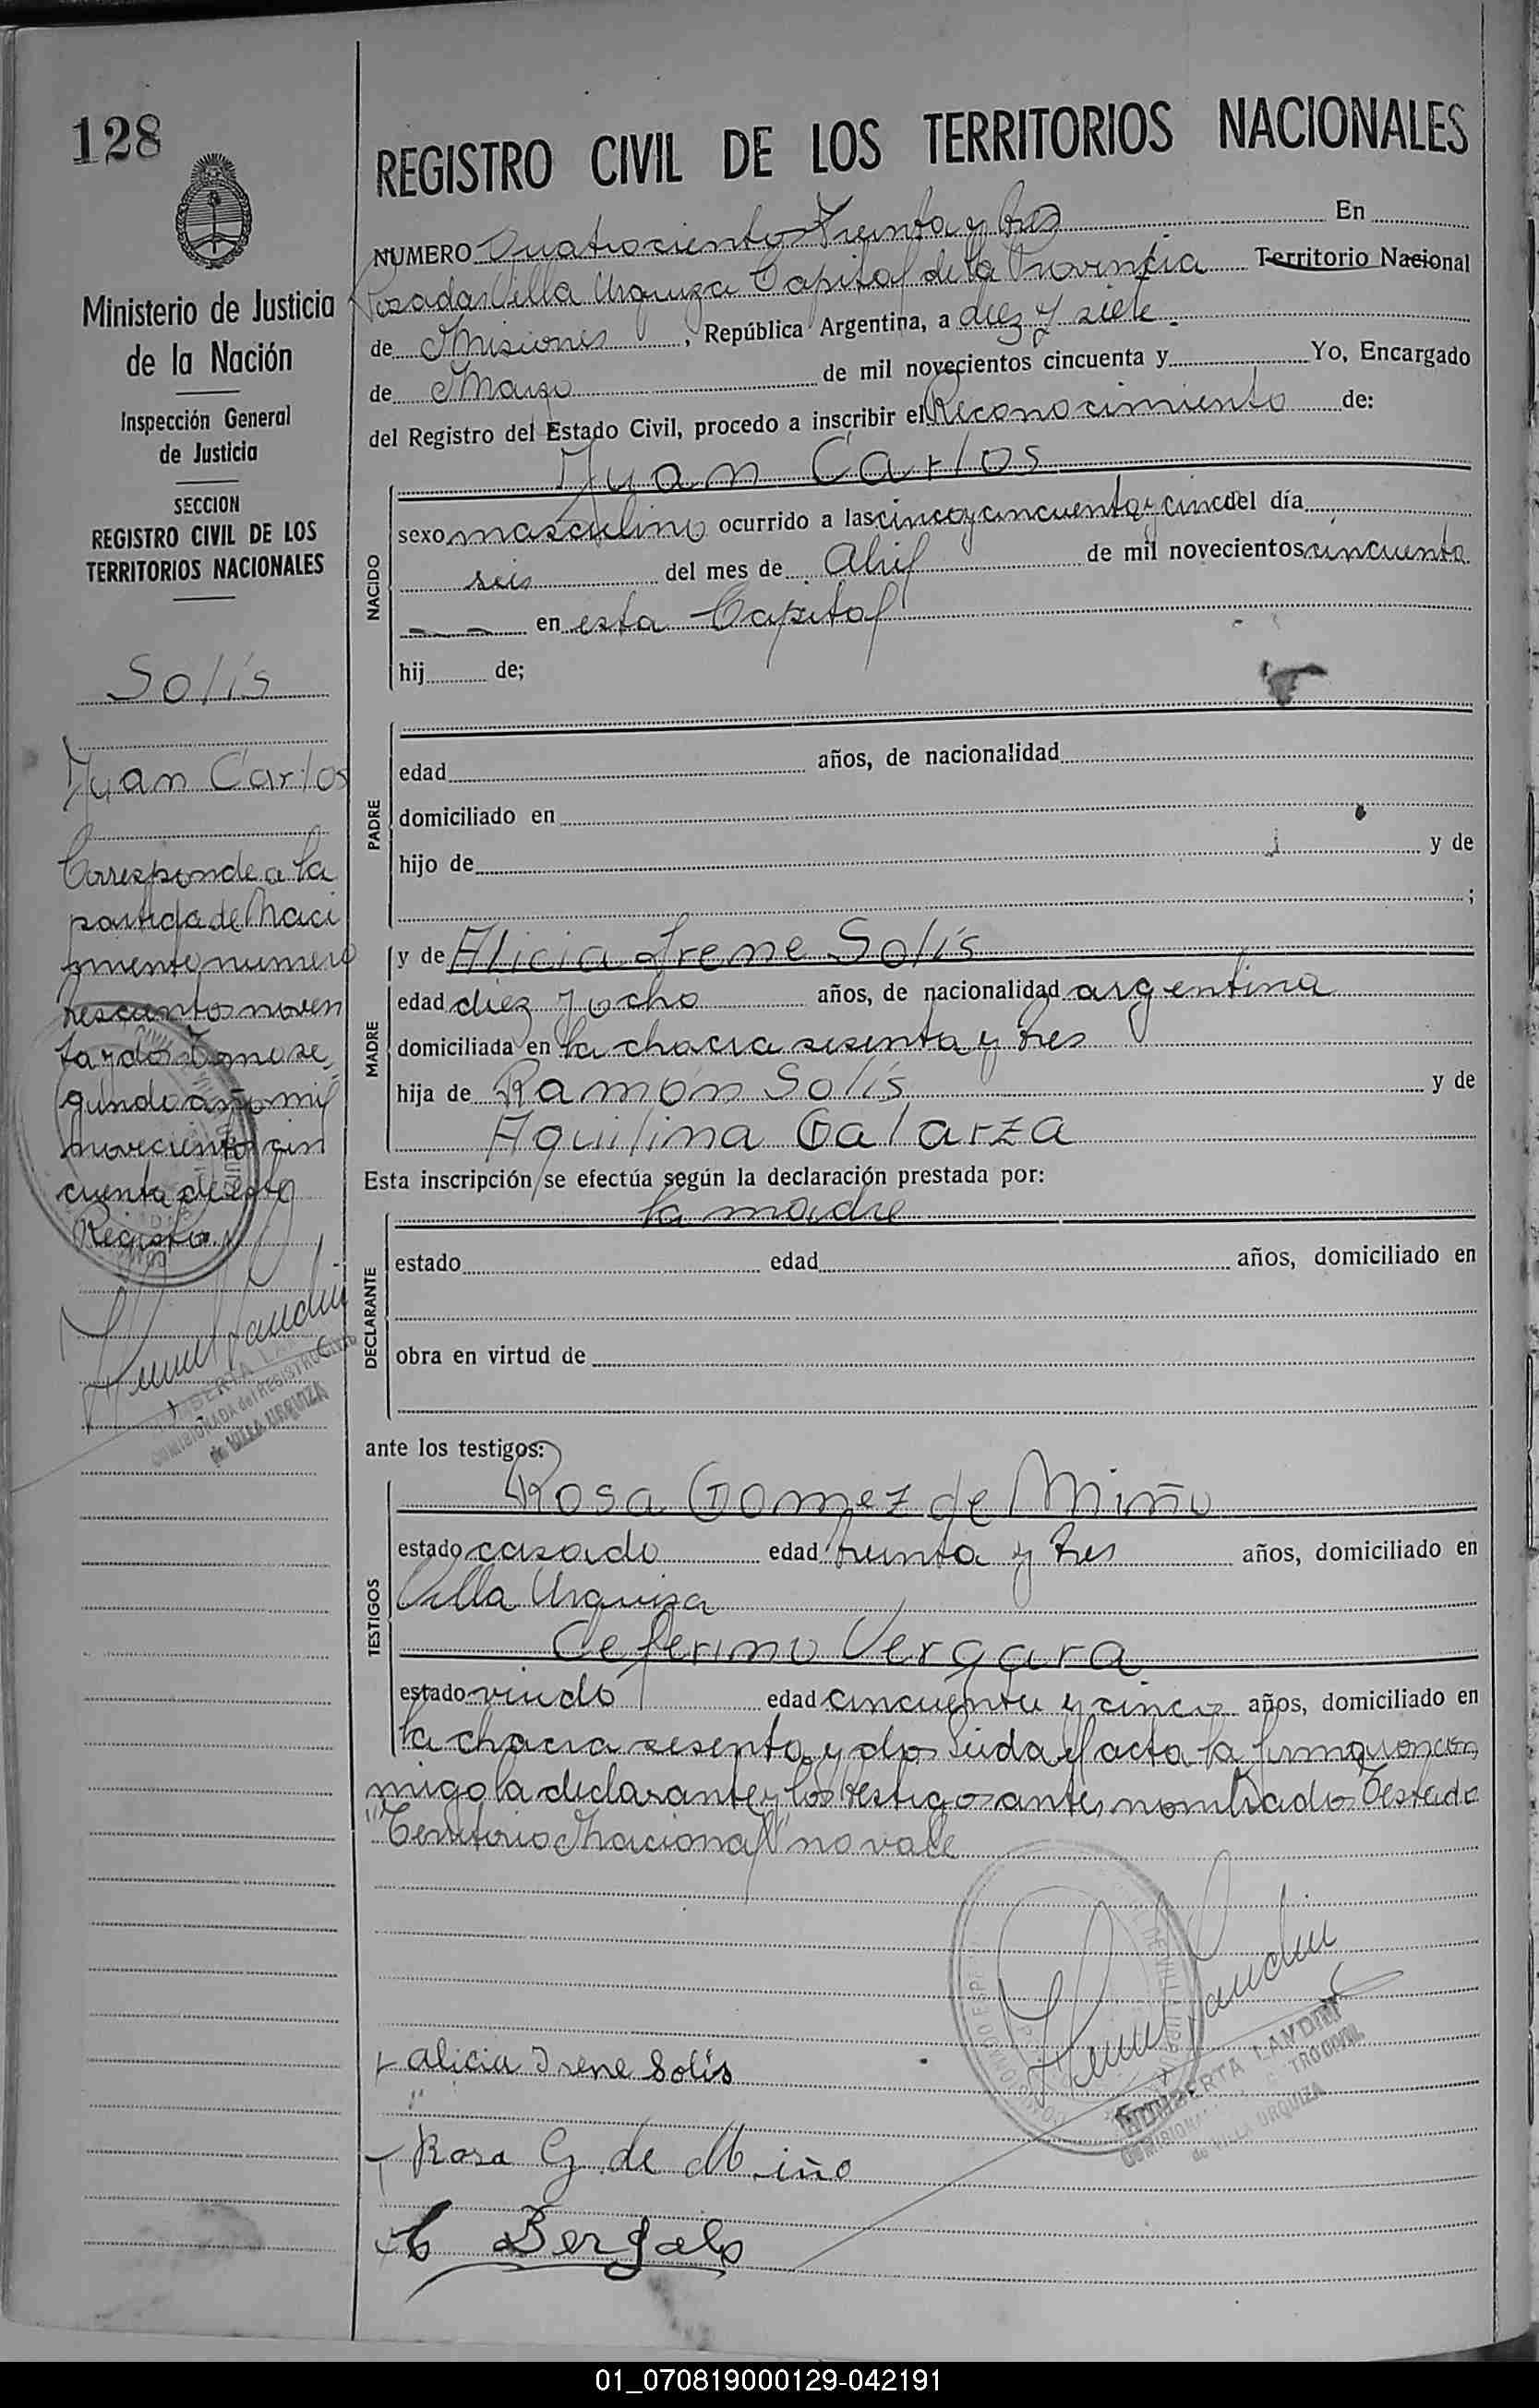 128
Ministerio de Justicia
de la Nación
Inspección General
de Justicia
SECCION
REGISTRO CIVIL DE LOS
TERRITORIOS NACIONALES
Solís
Juan Carlos
Corresponde a la
partida de Naci
miento numero
trescientos noven
ta y dos Tomo se
gundo año mil
novecientos cin
cuenta de este
Registro.
COMISIONADA del REGISTRO CIVIL
de VILLA URQUIZA
REGISTRO CIVIL DE LOS TERRITORIOS NACIONALES
NUMERO Cuatrocientos Treinta y tres En
Posadas Villa Urquiza Capital de la Provincia Territorio Nacional
de Misiones, República Argentina, a diez y siete
de Mayo de mil novecientos cincuenta y Yo, Encargado
del Registro del Estado Civil, procedo a inscribir el Reconocimiento de:
NACIDO
Juan Carlos
sexo masculino ocurrido a las cinco y cincuenta y cinco del día
seis del mes de Abril de mil novecientos cincuenta
en esta Capital
hij de;
PADRE
edad años, de nacionalidad
domiciliado en
hijo de y de
;
MADRE
y de Alicia Irene Solís
edad diez y ocho años, de nacionalidad argentina
domiciliada en la chacra sesenta y tres
hija de Ramón Solís y de
Aquilina Galarza
Esta inscripción se efectúa según la declaración prestada por:
DECLARANTE
la madre
estado edad años, domiciliado en
obra en virtud de
ante los testigos:
TESTIGOS
Rosa Gomez de Miño
estado casado edad treinta y tres años, domiciliado en
Villa Urquiza
Ceferino Vergara
estado viudo edad cincuenta y cinco años, domiciliado en
la chacra sesenta y dos Leida el acta la firmaron con
migo la declarante y los testigos antes nombrados Testado
"Territorio Nacional" no vale
Alicia Irene Solís
Rosa G. de Miño
HUMBERTA LANDINI
de VILLA URQUIZA
01_070819000129-042191